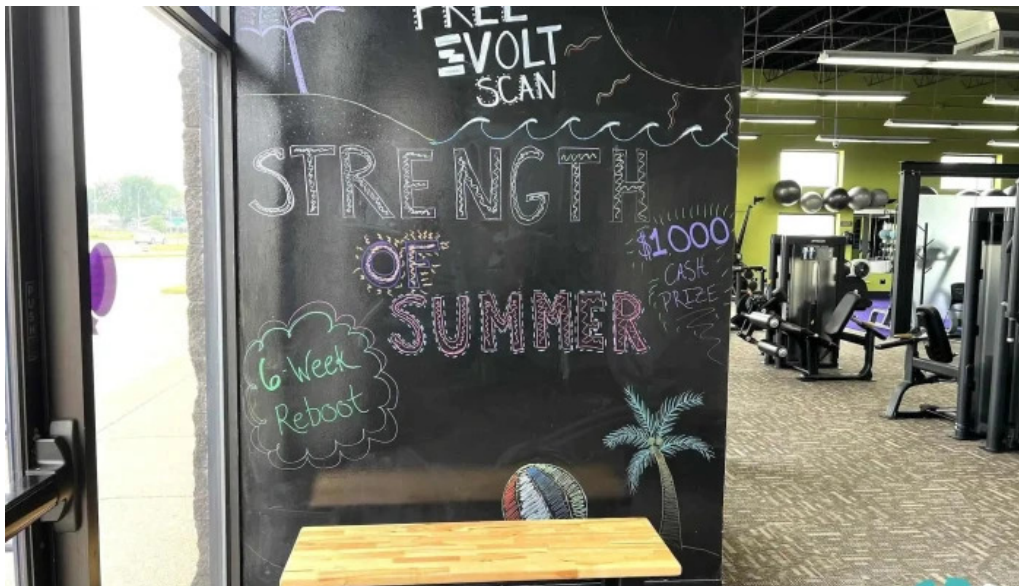 FREE
EVOLT
SCAN
STRENGTH
OF
SUMMER
$1000
CASH
PRIZE
6-Week
Reboot